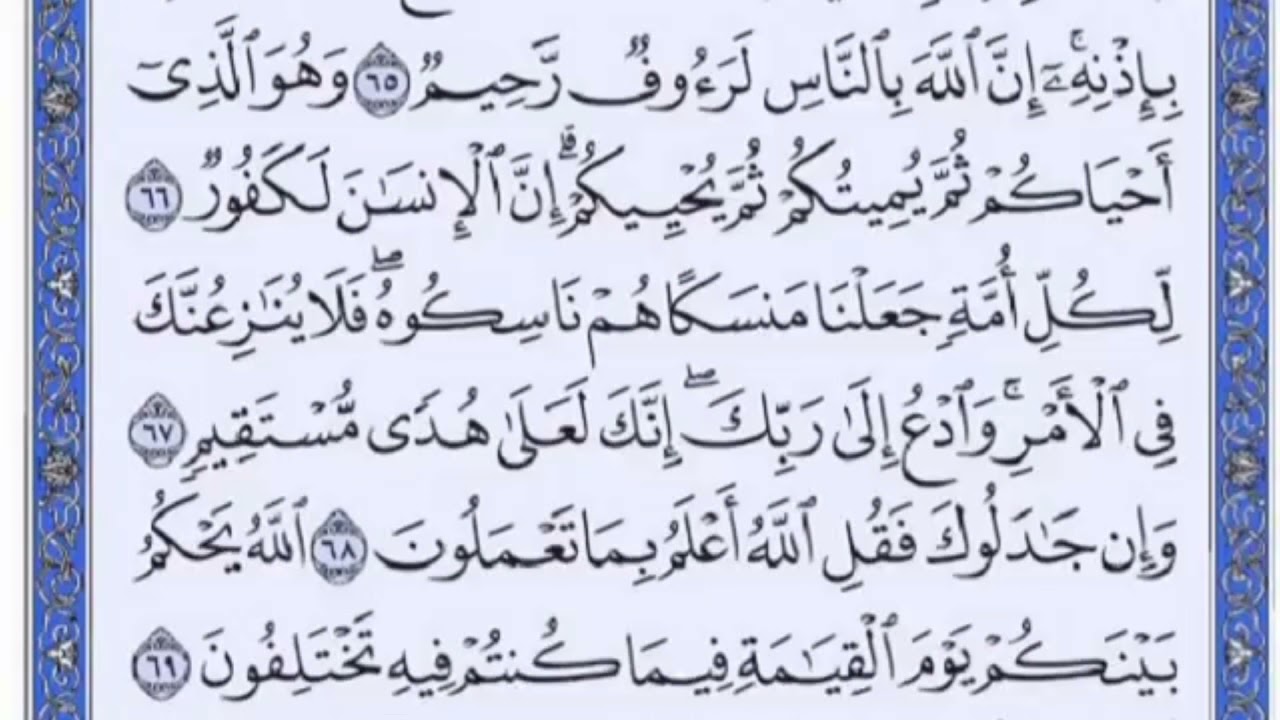 بِإِذۡنِهِۦٓۚ إِنَّ ٱللَّهَ بِٱلنَّاسِ لَرَءُوفٞ رَّحِيمٞ ٦٥ وَهُوَ ٱلَّذِيٓ
أَحۡيَاكُمۡ ثُمَّ يُمِيتُكُمۡ ثُمَّ يُحۡيِيكُمۡۗ إِنَّ ٱلۡإِنسَٰنَ لَكَفُورٞ ٦٦
لِّكُلِّ أُمَّةٖ جَعَلۡنَا مَنسَكًا هُمۡ نَاسِكُوهُۖ فَلَا يُنَٰزِعُنَّكَ
فِي ٱلۡأَمۡرِۚ وَٱدۡعُ إِلَىٰ رَبِّكَۖ إِنَّكَ لَعَلَىٰ هُدٗى مُّسۡتَقِيمٖ ٦٧
وَإِن جَٰدَلُوكَ فَقُلِ ٱللَّهُ أَعۡلَمُ بِمَا تَعۡمَلُونَ ٦٨ ٱللَّهُ يَحۡكُمُ
بَيۡنَكُمۡ يَوۡمَ ٱلۡقِيَٰمَةِ فِيمَا كُنتُمۡ فِيهِ تَخۡتَلِفُونَ ٦٩